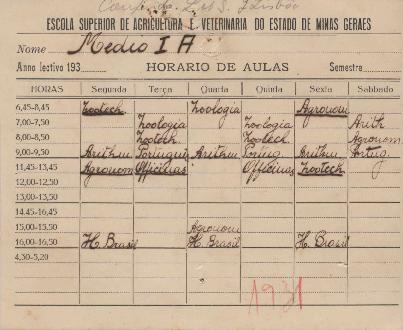 ESCOLA SUPERIOR DE AGRICULTURA E VETERINARIA DO ESTADO DE MINAS GERAES
Nome Medio I A
Anno lectivo 193 HORARIO DE AULAS Semestre
HORAS Segunda Terça Quarta Quinta Sexta Sabbado
6,45-8,45 Zootech. Zoologia Agronom
7,00-7,50 Zoologia Zoologia Arith
8,00-8,50 Zootech. Zootech. Agronom
9,00-9,50 Arithm Portuguez Arithm Portug. Arithm Portug.
11,45-13,45 Agronom Officinas Officinas Zootech.
12,00-12,50
13,00-13,50
14,45-16,45
15,00-15,50 Agronom
16,00-16,50 H. Brasil H. Brasil H. Brasil
4,30-5,20
1931